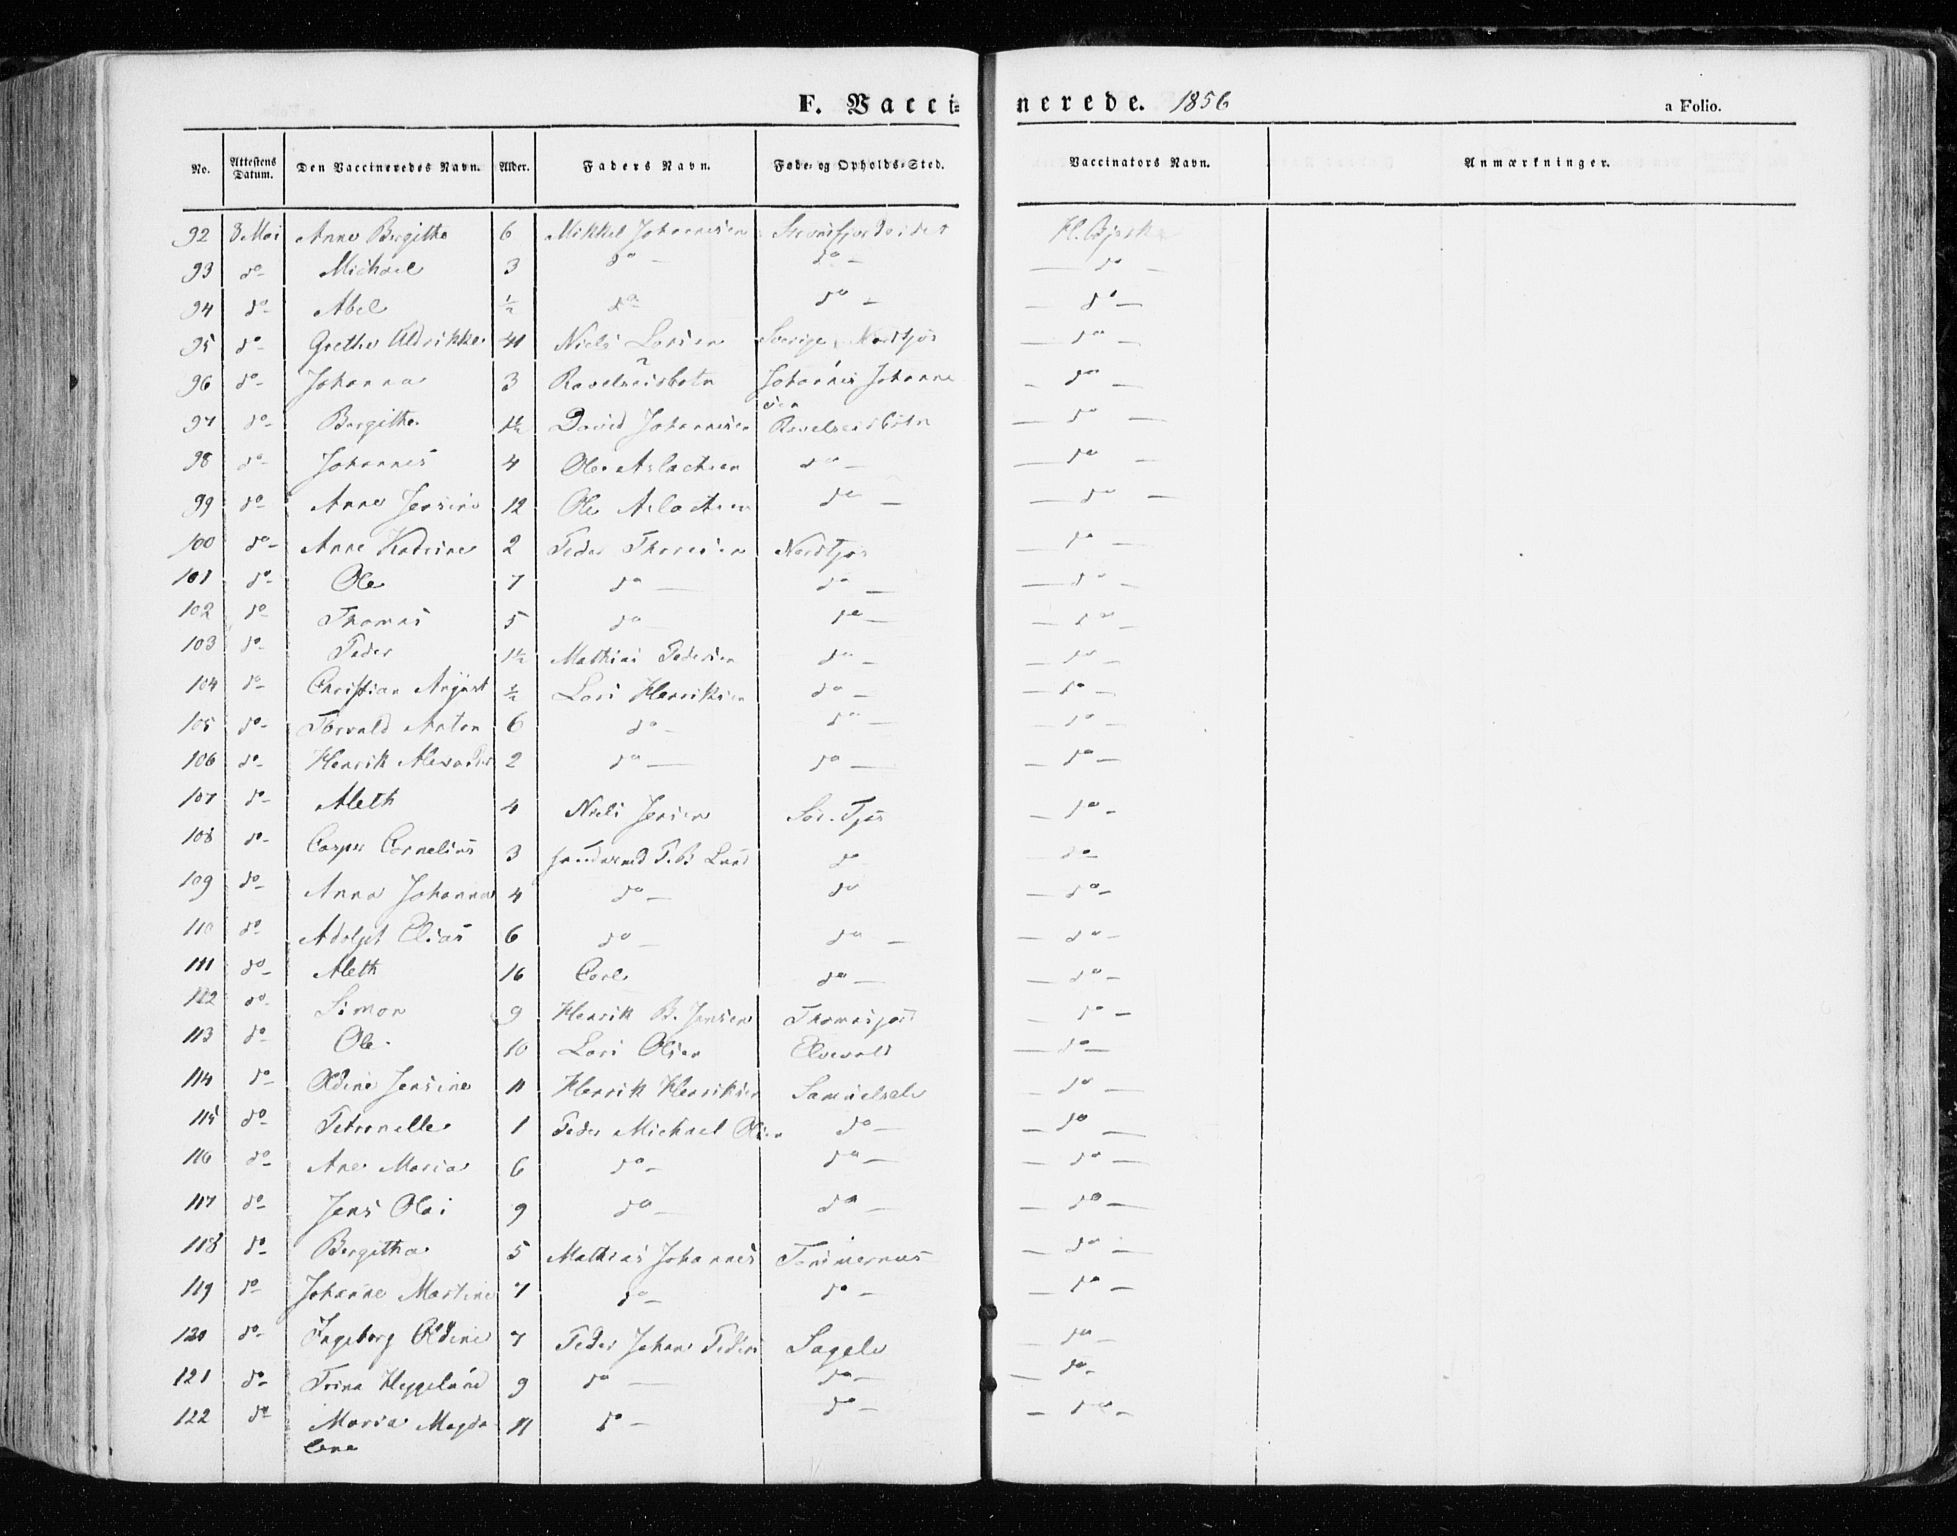 F. Vaccinerede. 1856 a Folio.
No. Attestens Datum. Den Vaccineredes Navn. Alder. Faders Navn. Føde- og Opholds-Sted. Vaccinators Navn. Anmærkninger.
92 8 Mai Anne Bergithe 6 Mikkel Johannesen H. Bjerk
93 do Michael 3 do do do
94 do Abel ½ do do do
95 do Grethe Uldrikke Niels Larsen Sverige, Nordkjos do
96 do Johanna 3 Ravelseisbotn Johannes Johanne
sen do
97 do Bergithe 1½ David Johannesen Ravelseisbotn do
98 do Johannes 4 Ole Aslachsen do do
99 do Anne Jensine 12 Ole Aslachsen do do
100 do Anne Kadrine 2 Peder Thoresen Nordkjos do
101 do Ole 7 do do do
102 do Thomas 5 do do do
103 do Peder 1½ Mathias Pedersen do do
104 do Christian August ½ Lars Henriksen do do
105 do Torvald Anton 6 do do do
106 do Henrik Alexander 2 do do do
107 do Aleth 4 Niels Jensen Sør-Kjos do
108 do Casper Cornelius 3 Lund do do
109 do Anna Johanna 4 do do do
110 do Adolph Elias 6 do do do
111 do Aleth 16 Carl do do
112 do Simon 9 Henrik B. Jensen do
113 do Ole 10 Lars Olsen Elvevold do
114 do Oldine Jensine 11 Henrik Henriksen Samuelselv do
115 do Petronelle 1 Peder Michael Olsen do do
116 do Ane Maria 6 do do do
117 do Jens Olai 9 do do do
118 do Bergitha 5 Mathias Johannes Tømmernæs do
119 do Johanne Martine 7 do do do
120 do Ingeborg Oldine 7 Peder Johan Peders Sagelv do
121 do Trina Heggelund 9 do do do
122 do Maria Magda 11 do do do
lena